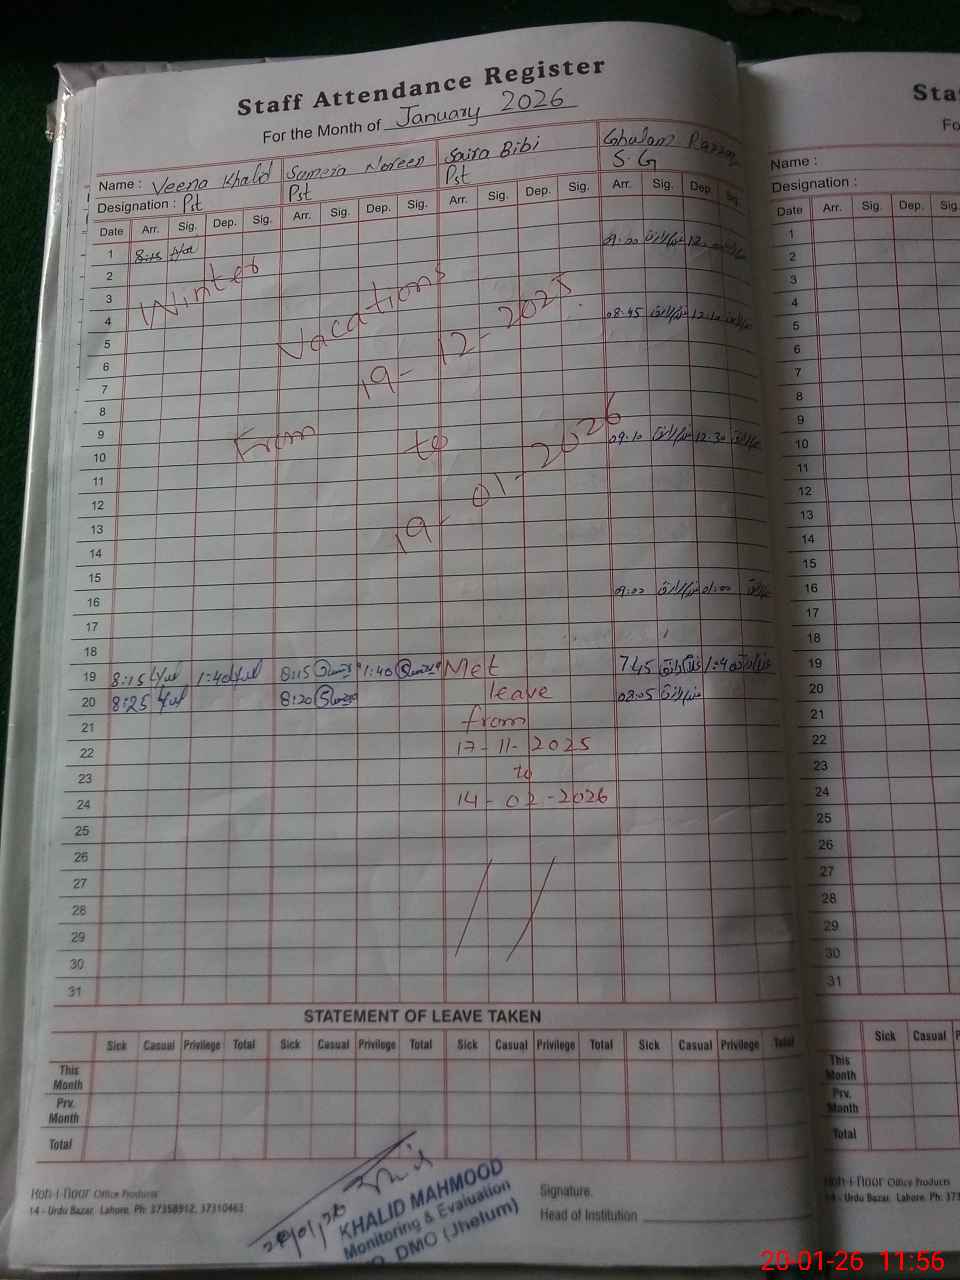 Staff Attendance Register
For the Month of January 2026
Name : Veena Khalid Sumera Noreen Saira Bibi Ghulam
Designation : Pst Pst Pst S.G
Date Arr. Sig. Dep. Sig. Arr. Sig. Dep. Sig. Arr. Sig. Dep. Sig. Arr. Sig. Dep. Sig.
1 8:15 09:00
2
3 Winter
4 Vacations 08:45
5 19-12-2025
6
7
8
9 From to 09:10 12:30
10 19-01-2026
11
12
13
14
15
16 09:00 01:00
17
18
19 8:15 1:40 8:15 1:40 Met 7:45 1:40
20 8:25 8:20 leave 08:05
21 from
22 17-11-2025
23 to
24 14-02-2026
25
26
27
28
29
30
31
STATEMENT OF LEAVE TAKEN
Sick Casual Privilege Total Sick Casual Privilege Total Sick Casual Privilege Total Sick Casual Privilege Total
This Month
Prv. Month
Total
Koh-i-noor Office Products
14 - Urdu Bazar, Lahore, Ph: 37358912, 37310463
Signature.
Head of Institution
20/01/26
KHALID MAHMOOD
Monitoring & Evaluation
DMO (Jhelum)
Sta
Fo
Name :
Designation :
Date Arr. Sig. Dep. Sig.
1
2
3
4
5
6
7
8
9
10
11
12
13
14
15
16
17
18
19
20
21
22
23
24
25
26
27
28
29
30
31
Sick Casual P
This Month
Prv. Month
Total
Koh-i-noor Office Products
14 - Urdu Bazar, Lahore, Ph: 373
20-01-26 11:56